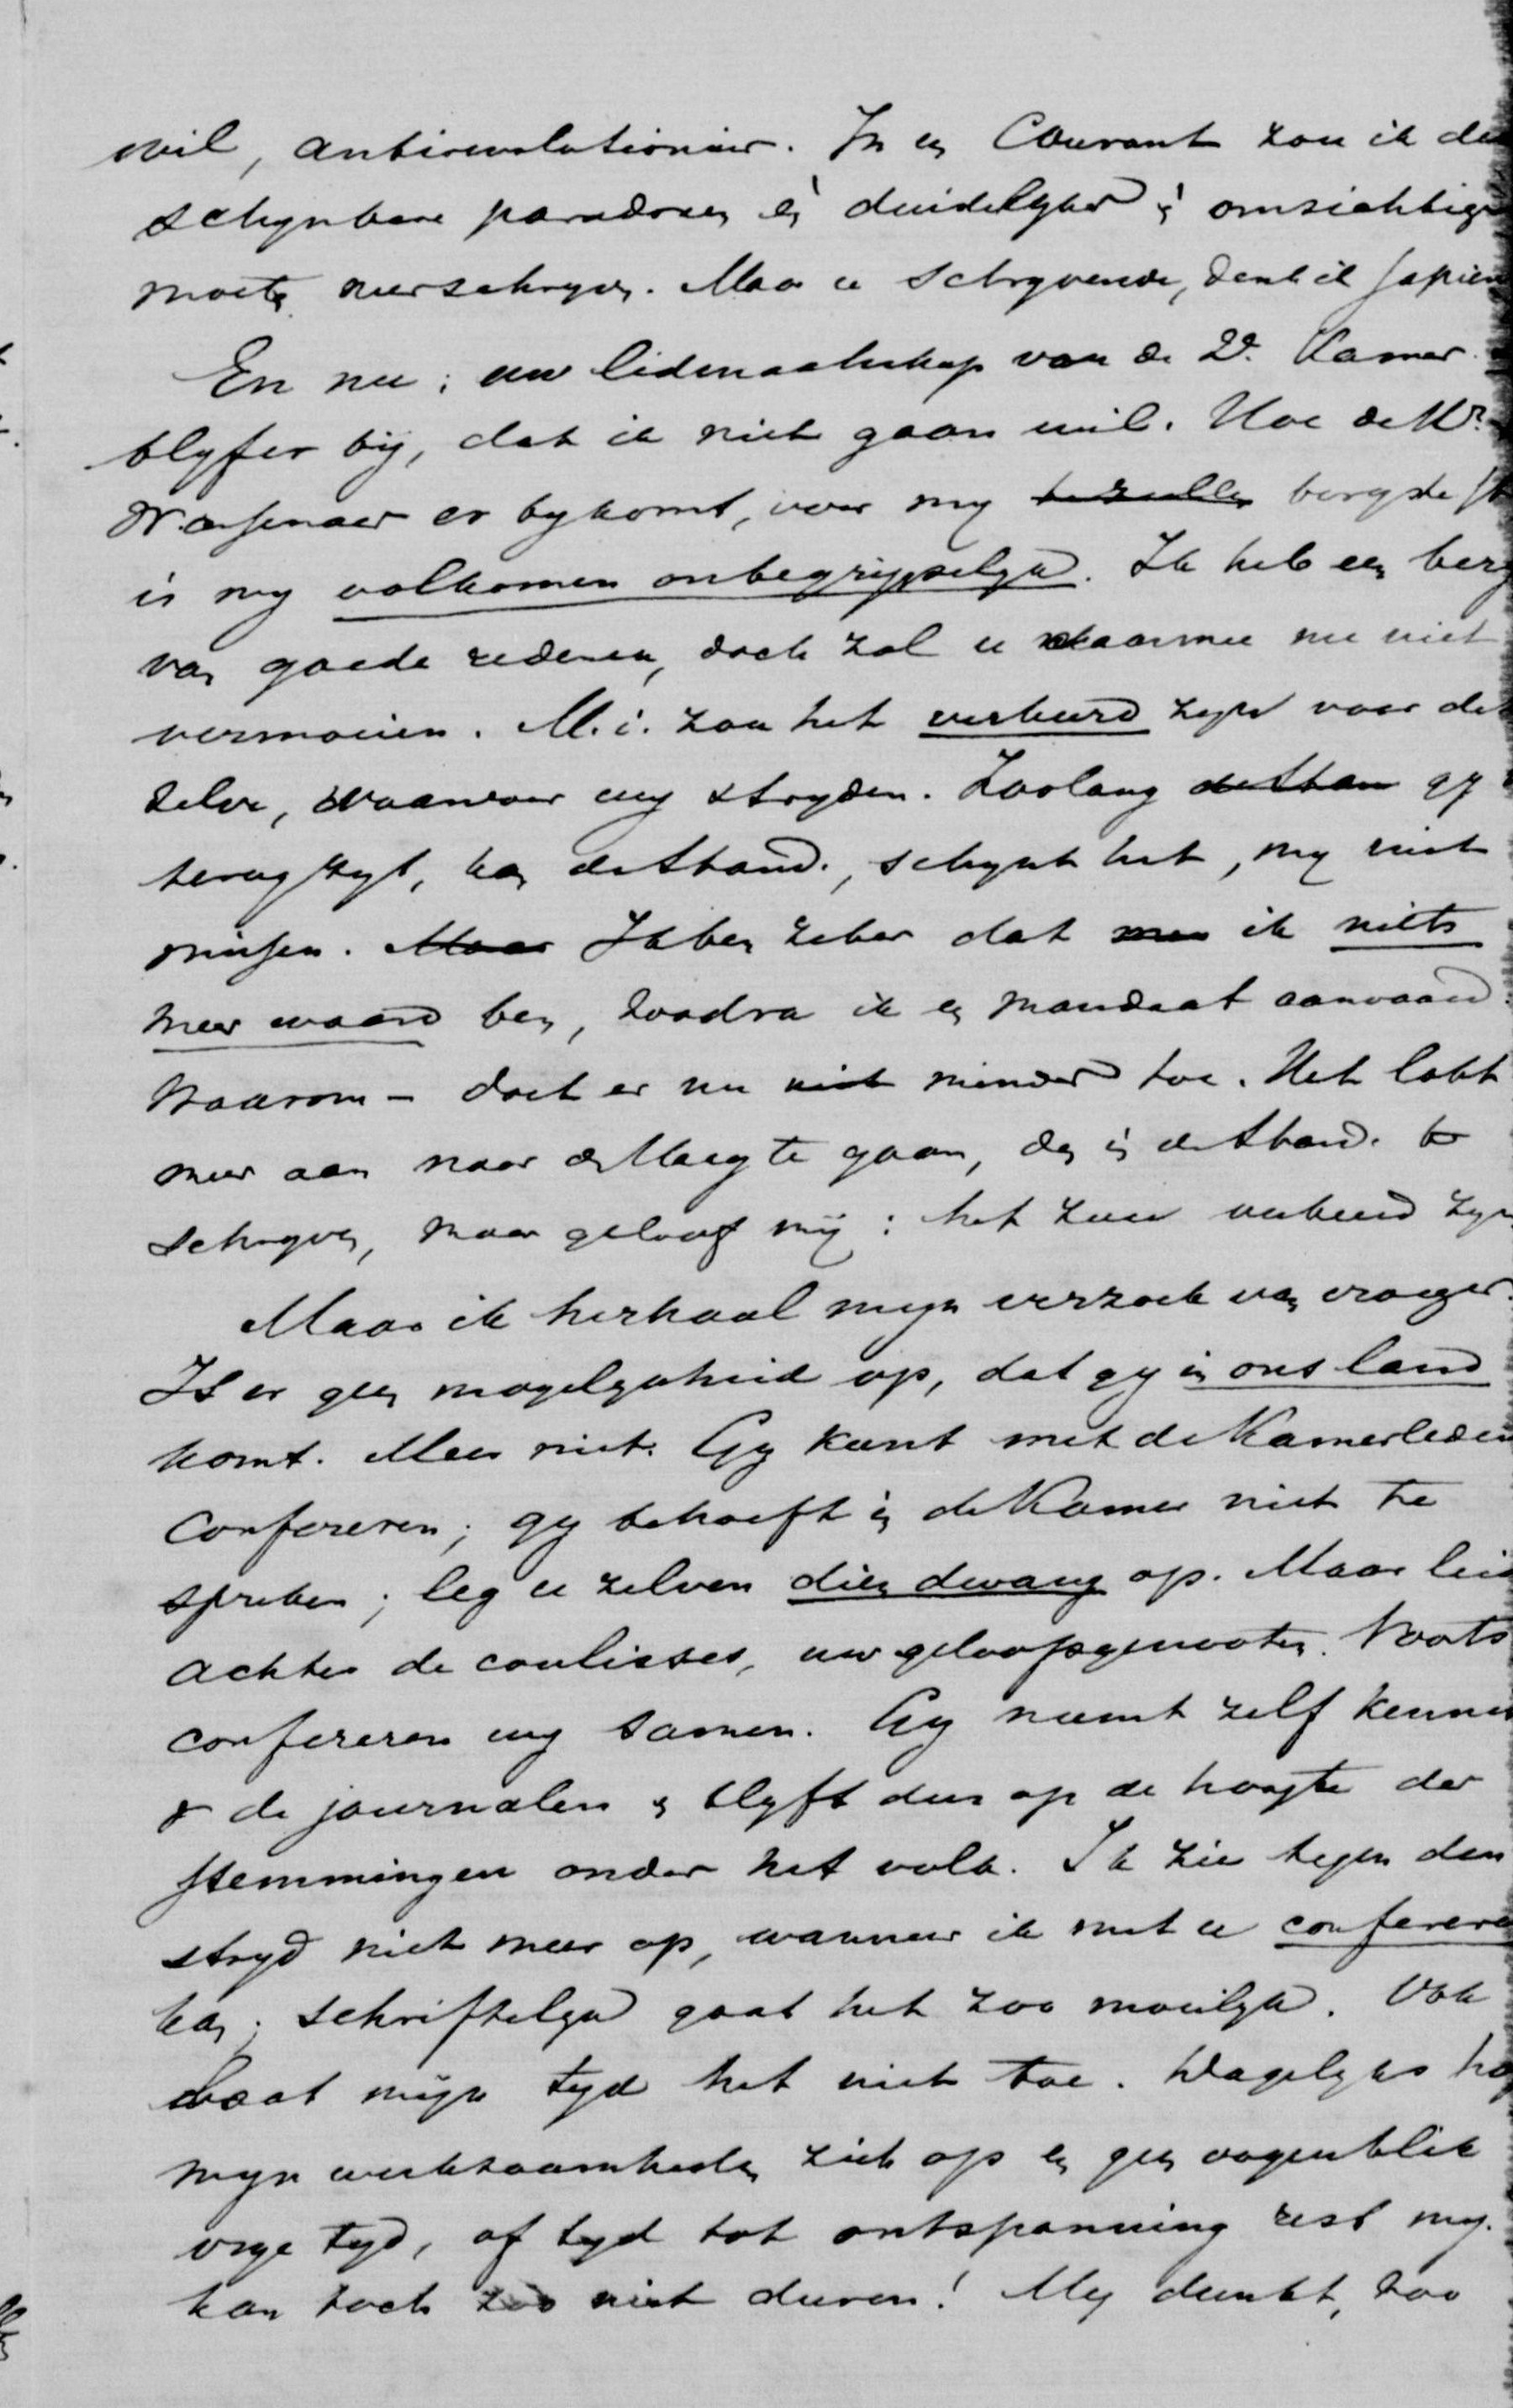 wil, antirevolutionair. In een Courant zou ik de
schynbare paradoxen én duidelyker én omzichtige
moeten neerschryven. Maar u schryvende, denk ik sapien
En nu: uw lidmaatschap van de 2e. Kamer.
blyf er bij, dat ik niet gaan wil. Hoe de Hr.
Wassenaer er bykomt, voor my te zullen
is my volkomen onbegrijpelyk. Ik heb een berg
van goede redenen, doch zal u daarmee nu niet
vermoeien. M.i. zou het verkeerd zyn voor de
zelve, waarvoor wy stryden. Zoolang de Stan gy
terug zyt, kan de Stand., schynt het, my niet
missen. Maar Ik ben zeker dat men ik niets
meer waard ben, zoodra ik een mandaat aanvaard.
Waarom — doet er nu niet minder toe. Het lokt
meer aan naar den Haag te gaan, dan in de Stand. te
schryven, maar geloof mij: het zou verkeerd zyn
Maar ik herhaal myn verzoek van vroeger.
Is er geen mogelykheid op, dat gy in ons land
komt. Meer niet. Gy kunt met de Kamerleden
confereren; gy behoeft in de Kamer niet te
spreken; leg u zelven dien dwang op. Maar leid
achter de coulisses, uw geloofsgenooten. Voorts
confereren wy samen. Gy neemt zelf kennis
v de journalen en blyft dus op de hoogte der
stemmingen onder het volk. Ik zie tegen den
stryd niet meer op, wanneer ik met u confereren
kan; schriftelyk gaat het zoo moeilyk. Ook
laat mijn tyd het niet toe. Dagelyks ho
myn werkzaamheden zich op en geen oogenblik
vrye tyd, of tyd tot ontspanning rest my.
kan toch zoo niet duren! My dunkt, zoo